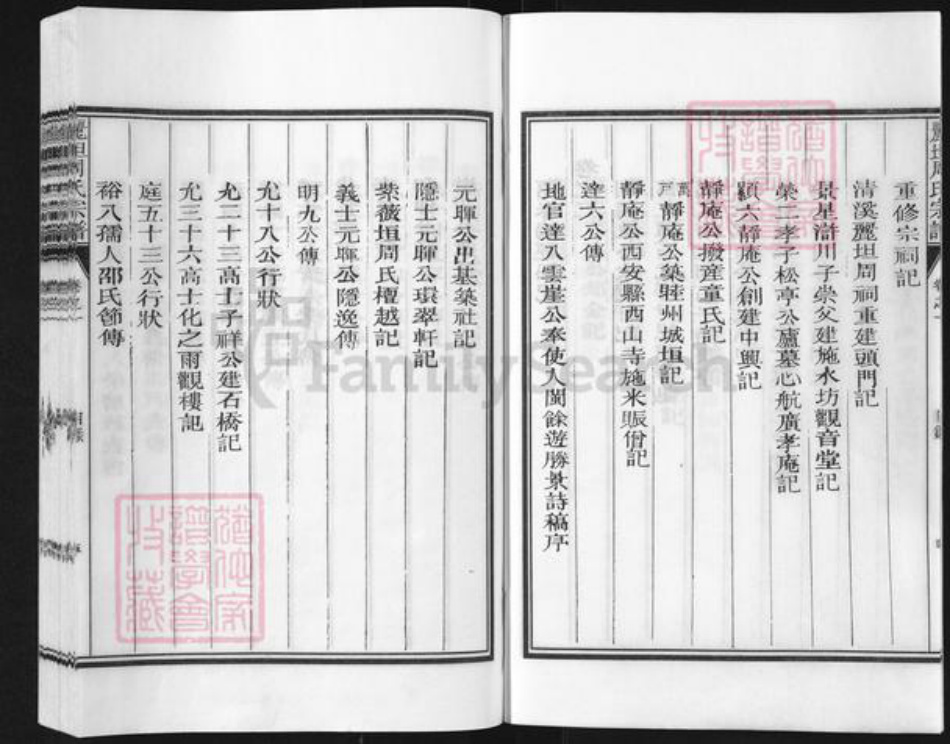 重修宗祠記
清溪麗坦周祠重建頭門記
景星滸川子崇父建施水坊觀音堂記
榮二孝子松亭公廬墓心航廣孝庵記
穎六靜庵公創建中興記
靜庵公撥産童氏記
靜庵公築睦州城垣記
靜庵公西安縣西山寺施米賑僧記
達六公傳
地官達八雲崖公奉使入閩餘遊勝景詩稿序
元暉公出基築社記
隱士元暉公環翠軒記
紫薇垣周氏檀越記
義士元暉公隱逸傳
明九公傳
允十八公行狀
允二十三高士子祥公建石橋記
允三十六高士化之雨觀樓記
庭五十三公行狀
裕八孺人邵氏節傳
麗坦周氏宗譜
目錄
譜學會
收藏
FamilySearch